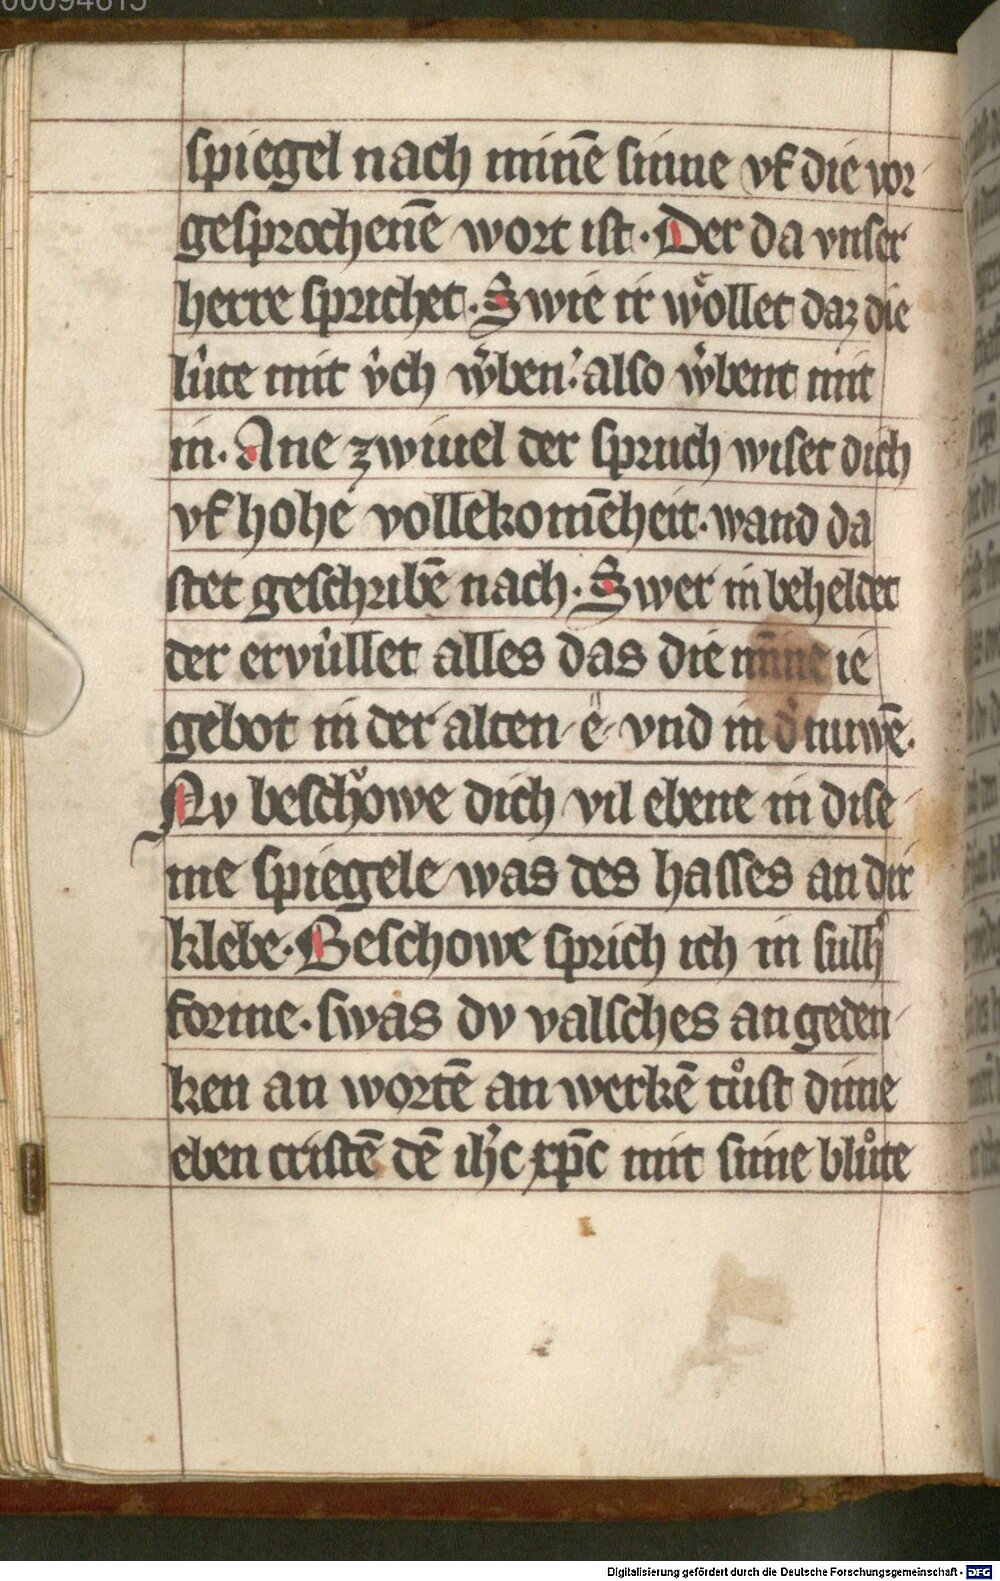 00094615
spiegel nach minē sinne vf die vor-
gesprochenē wort ist · Der da vnser
herre sprichet · Swie ir woͤllet daz die
lûte mit v̂ch wͤrben: also wͤrbent mit
in · Ane zwiuel der spruch wiset dich
vf hohe vollekomēheit · wand da
stet geschribē nach · Swer in beheldet
der ervûllet alles das die mīne ie
gebot in der alten · e · vnd in d' nuwē ·
Nv beschoͮwe dich vil ebene in dise-
me spiegele was des hasses an dir
klebe · Beschowe sprich ich in sulh'
forme · swas dv valsches an geden-
ken an wortē an werkē tuͦst dime
eben cristē dē ih'c xp̄c mit sime bluͦte
Digitalisierung gefördert durch die Deutsche Forschungsgemeinschaft - DFG